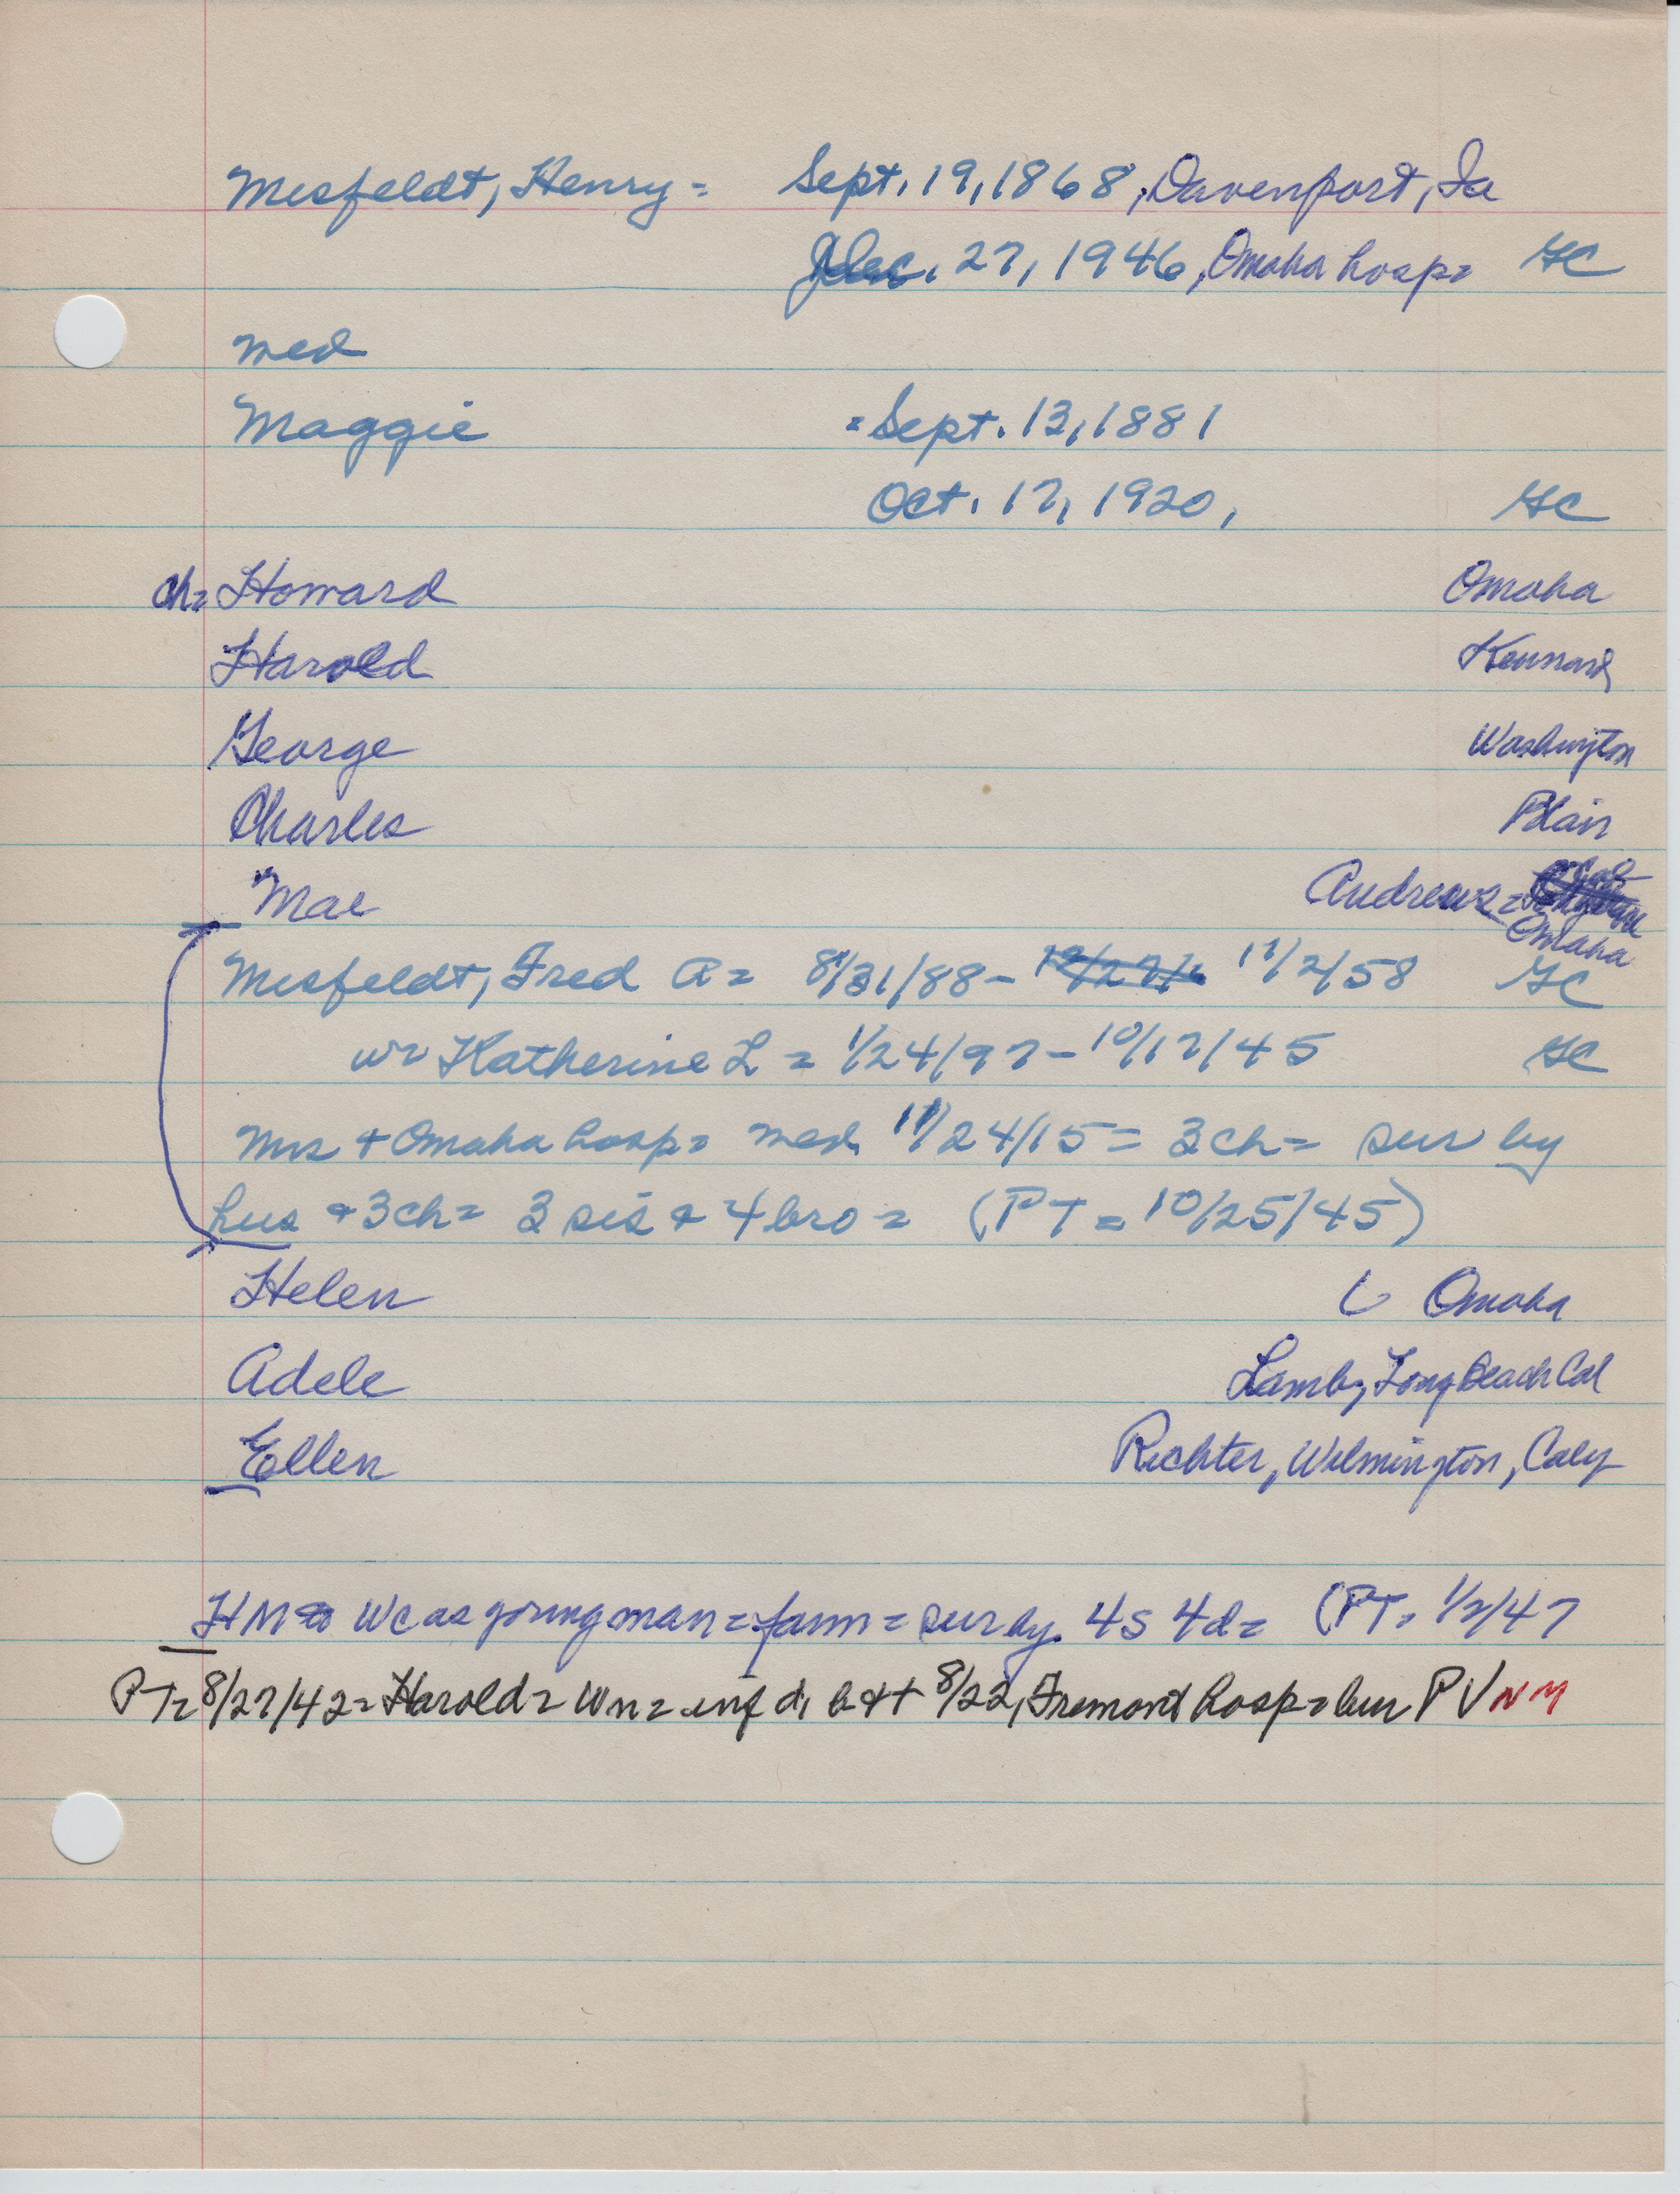 Misfeldt, Henry = Sept. 19, 1868, Davenport, Ia
Dec. 27, 1946, Omaha hosp= GC
med
Maggie = Sept. 13, 1881
Oct. 17, 1920, GC
ch= Howard Omaha
Harold Kennard
George Washington
Charles Blair
Mae Andrews =
Omaha
Misfeldt, Fred A = 8/31/88 - 11/2/58 GC
w= Katherine L = 1/24/97 - 10/17/45 GC
Mrs + Omaha hosp= med 11/24/15 = 3 ch = sur by
hus + 3 ch = 3 sis + 4 bro = (PT = 10/25/45)
Helen Omaha
Adele Lamb, Long Beach Cal
Ellen Richter, Wilmington, Calif
HM = WC as young man = farm = sur by 4s 4d = (PT, 1/2/47
PT= 8/27/42 = Harold = Wm = inf d, b + + 8/22, Fremont hosp = bur PV NM